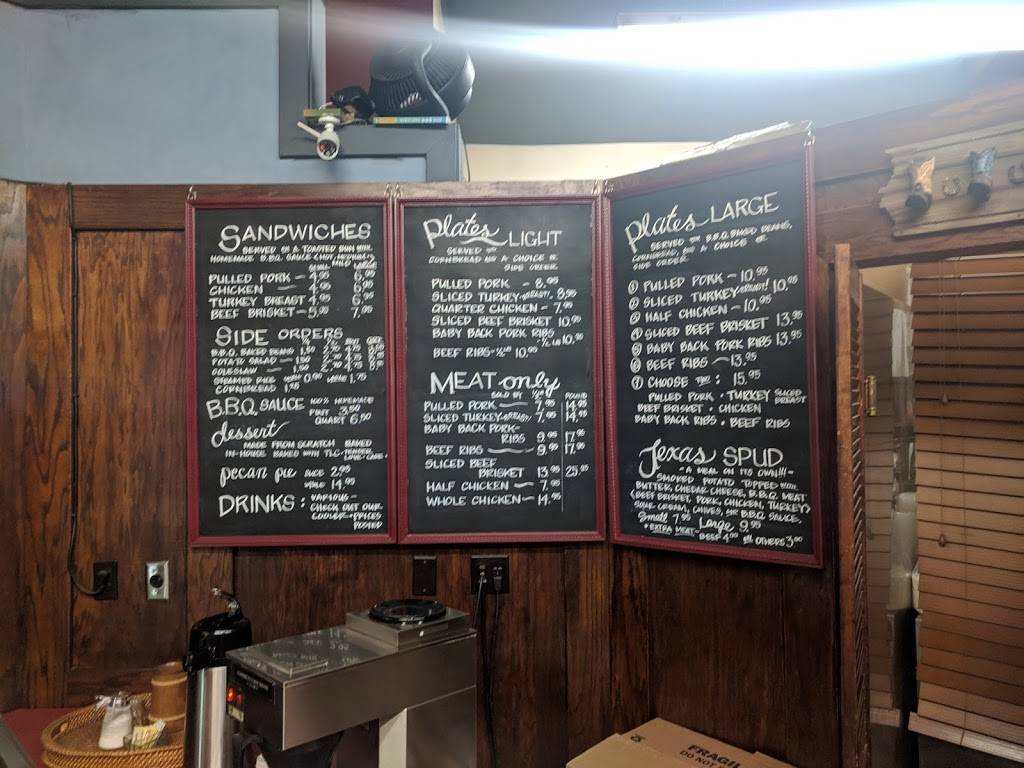 SANDWICHES
SERVED ON A TOASTED BUN WITH
HOMEMADE B.B.Q. SAUCE (HOT, MEDIUM, MILD)
SMALL LARGE
PULLED PORK — 4.95 6.95
CHICKEN — 4.95 6.95
TURKEY BREAST — 4.95 6.95
BEEF BRISKET — 5.95 7.95
SIDE ORDERS
B.B.Q. BAKED BEANS 1.50
POTATO SALAD — 1.50
COLESLAW — 1.50
STEAMED RICE
CORNBREAD
B.B.Q. SAUCE 100% HOMEMADE
PINT 3.50
QUART 6.50
dessert
MADE FROM SCRATCH BAKED
IN-HOUSE BAKED WITH TLC-TENDER
LOVE-CARE
pecan pie SLICE 2.95
WHOLE 14.95
DRINKS: VARIOUS-
CHECK OUT OUR
COOLER-PRICES
POSTED
Plates LIGHT
SERVED WITH
CORNBREAD AND A CHOICE OF
SIDE ORDER
PULLED PORK - 8.95
SLICED TURKEY (BREAST) - 8.95
QUARTER CHICKEN - 7.95
SLICED BEEF BRISKET 10.95
BABY BACK PORK RIBS
- ½ LB 10.95
BEEF RIBS - ½ LB 10.95
MEAT only
SOLD BY ½ LB POUND
PULLED PORK — 7.95 14.95
SLICED TURKEY (BREAST) — 7.95 14.95
BABY BACK PORK-
RIBS 9.95 17.95
BEEF RIBS — 9.95 17.95
SLICED BEEF
BRISKET 13.95 25.95
HALF CHICKEN — 7.95
WHOLE CHICKEN — 14.95
Plates LARGE
SERVED WITH B.B.Q. BAKED BEANS,
CORNBREAD, AND A CHOICE OF
SIDE ORDER
① PULLED PORK - 10.95
② SLICED TURKEY (BREAST) 10.95
③ HALF CHICKEN - 10.95
④ SLICED BEEF BRISKET 13.95
⑤ BABY BACK PORK RIBS 13.95
⑥ BEEF RIBS — 13.95
⑦ CHOOSE TWO: 15.95
PULLED PORK • TURKEY SLICED BREAST
BEEF BRISKET • CHICKEN
BABY BACK RIBS • BEEF RIBS
Texas SPUD
- A MEAL ON ITS OWN!!! -
SMOKED POTATO TOPPED WITH
BUTTER, CHEDAR CHEESE, B.B.Q. MEAT
(BEEF BRISKET, PORK, CHICKEN, TURKEY)
SOUR CREAM, CHIVES, AND B.B.Q. SAUCE.
Small 7.95 Large 9.95
• EXTRA MEAT - BEEF 4.00 ALL OTHERS 3.00
FRAGILE
DO NOT